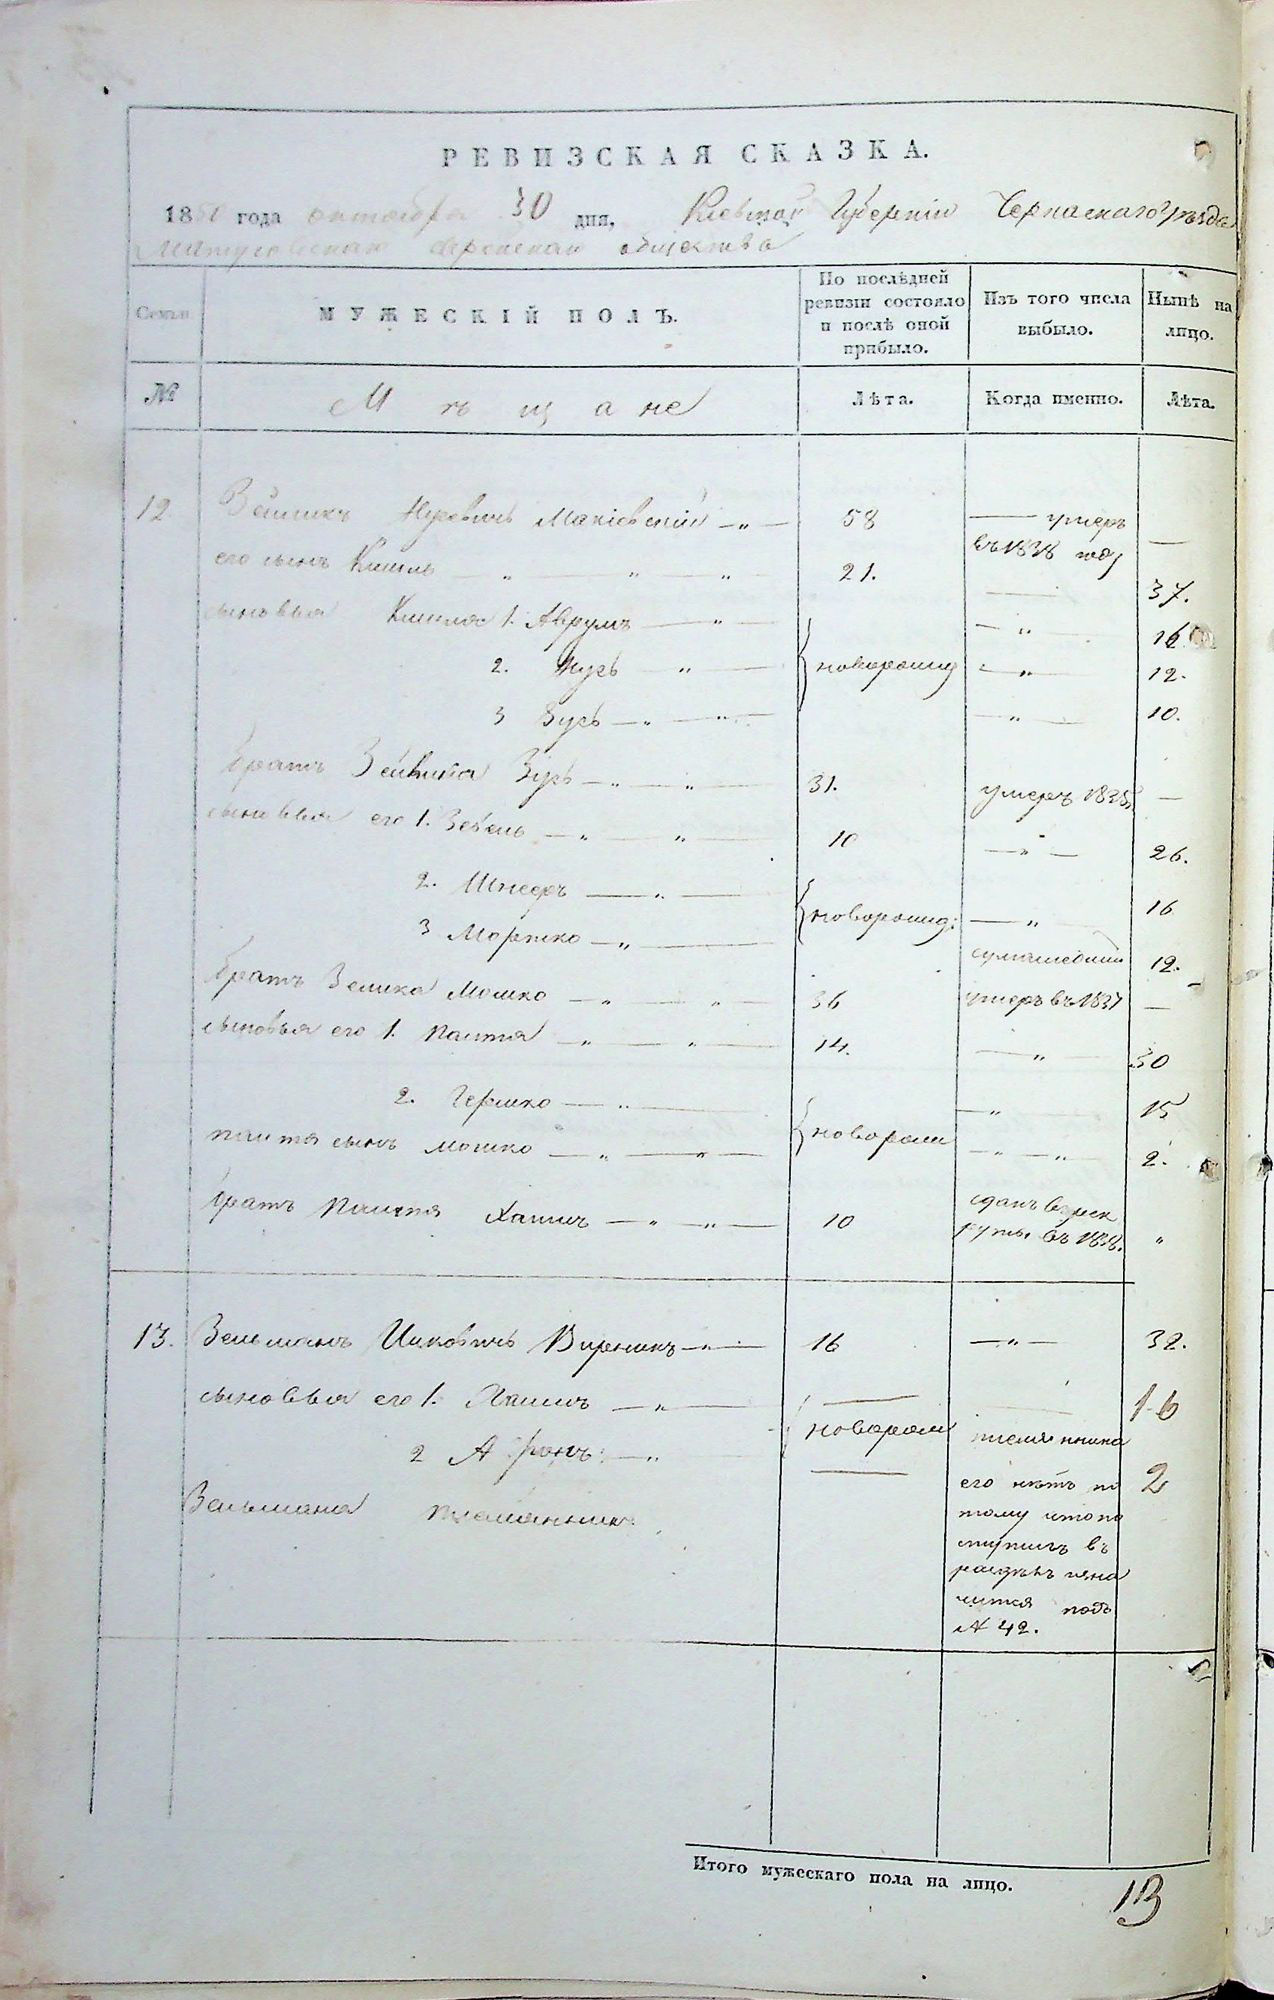 РЕВИЗСКАЯ СКАЗКА.
1850 года октября 30 дня, Киевской Губерніи Черкаскаго уѣзда
еврейскаго общества
Семьи
МУЖЕСКІЙ ПОЛЪ.
По послѣдней ревизіи состояло и послѣ оной прибыло.
Изъ того числа выбыло.
Нынѣ на лицо.
№
Мѣщане
Лѣта.
Когда именно.
Лѣта.
12 Маніевскій — „ — 58 — умеръ
въ 1838 году —
его сынъ — „ — „ — „ — 21. — 37.
сыновья 1. Аврумъ — „ — „ — 16
2. — „ — новорожд — „ — 12.
3 Зусь — „ — „ — „ — 10.
братъ Зейвика Зусь — „ — „ — 31. умеръ 1835 —
сыновья его 1. — „ — „ — 10 — „ — 26.
2. Шнееръ — „ — новорожд: — „ 16
3 Мортко — „ — сумашедший 12.
братъ Мошко — „ — „ — 36 умеръ въ 1837 —
сыновья его 1. — „ — „ — 14. — „ — 30
2. Гершко — „ — новорож — „ 15
сынъ Мошко — „ — „ — — „ — „ 2.
братъ Хаимъ — „ — „ — 10 сданъ въ рек
руты въ 1838. „
13. Зельманъ Ицковичъ Вирникъ — „ — 16 — „ — 32.
сыновья его 1. Хаимъ — „ — 16
2 Аронъ — „ новорож 2
Зельмана племянникъ
племянника
его нѣтъ по
тому что по
ступилъ въ
значится подъ
№ 42.
Итого мужескаго пола на лицо. 13